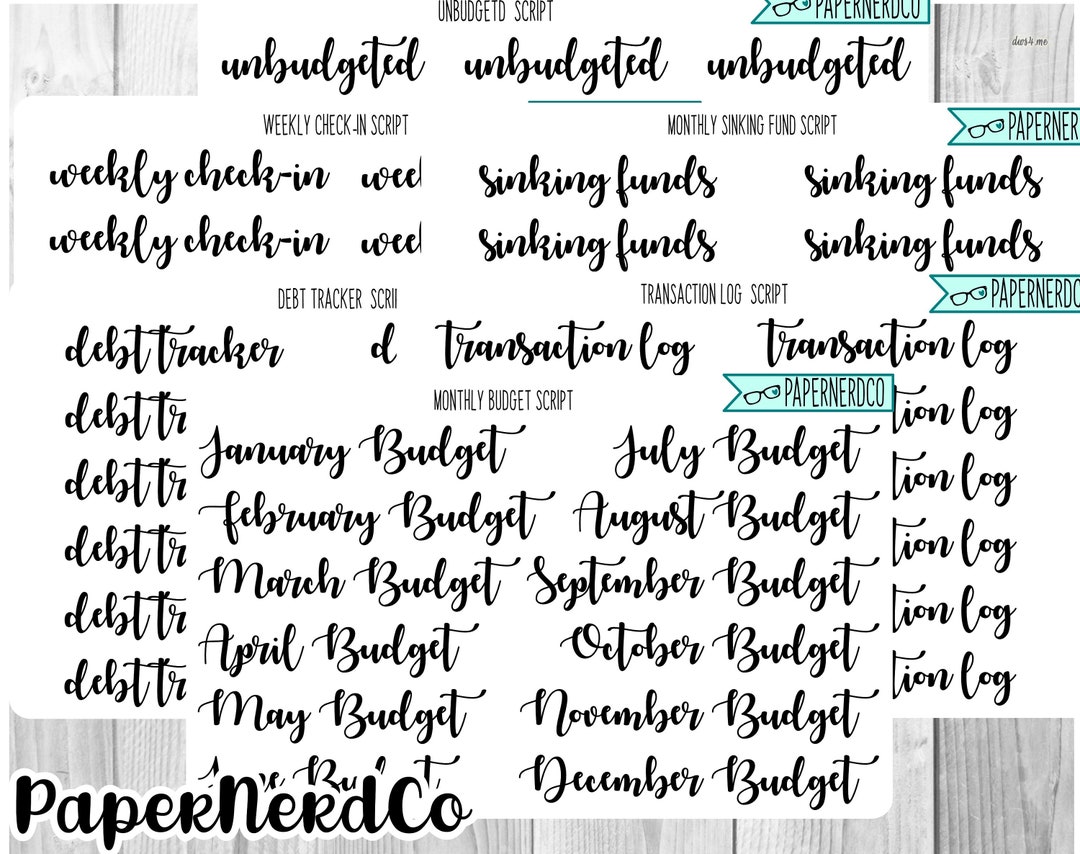 UNBUDGETD SCRIPT
PAPERNERDCO
dws4.me
unbudgeted unbudgeted unbudgeted
WEEKLY CHECK-IN SCRIPT
weekly check-in wee
weekly check-in wee
MONTHLY SINKING FUND SCRIPT
PAPERNER
sinking funds sinking funds
sinking funds sinking funds
DEBT TRACKER SCRI
debt tracker d
debt tr
debt tr
debt tr
debt tr
debt tr
TRANSACTION LOG SCRIPT
PAPERNERDCO
transaction log transaction log
tion log
tion log
tion log
tion log
tion log
MONTHLY BUDGET SCRIPT
PAPERNERDCO
January Budget July Budget
February Budget August Budget
March Budget September Budget
April Budget October Budget
May Budget November Budget
June Budget December Budget
PaperNerdCo